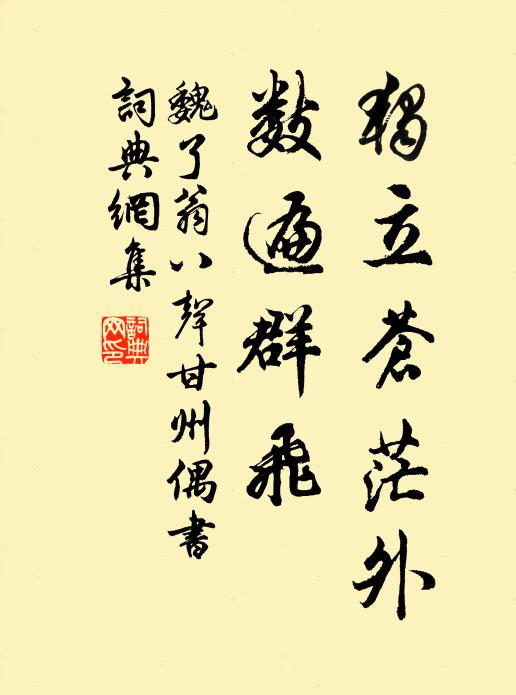 獨立蒼茫外
數遍群飛
魏了翁八聲甘州偶書
詞典網集
詞典網印